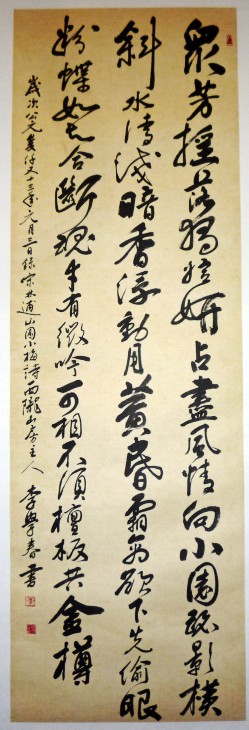 眾芳搖落獨暄妍占盡風情向小園疏影橫
斜水清淺暗香浮動月黃昏霜禽欲下先偷眼
粉蝶如知合斷魂幸有微吟可相不須檀板共金樽
歲次公元贰仟又十三年元月三日錄宋林逋山園小梅詩西隴山房主人李學春書